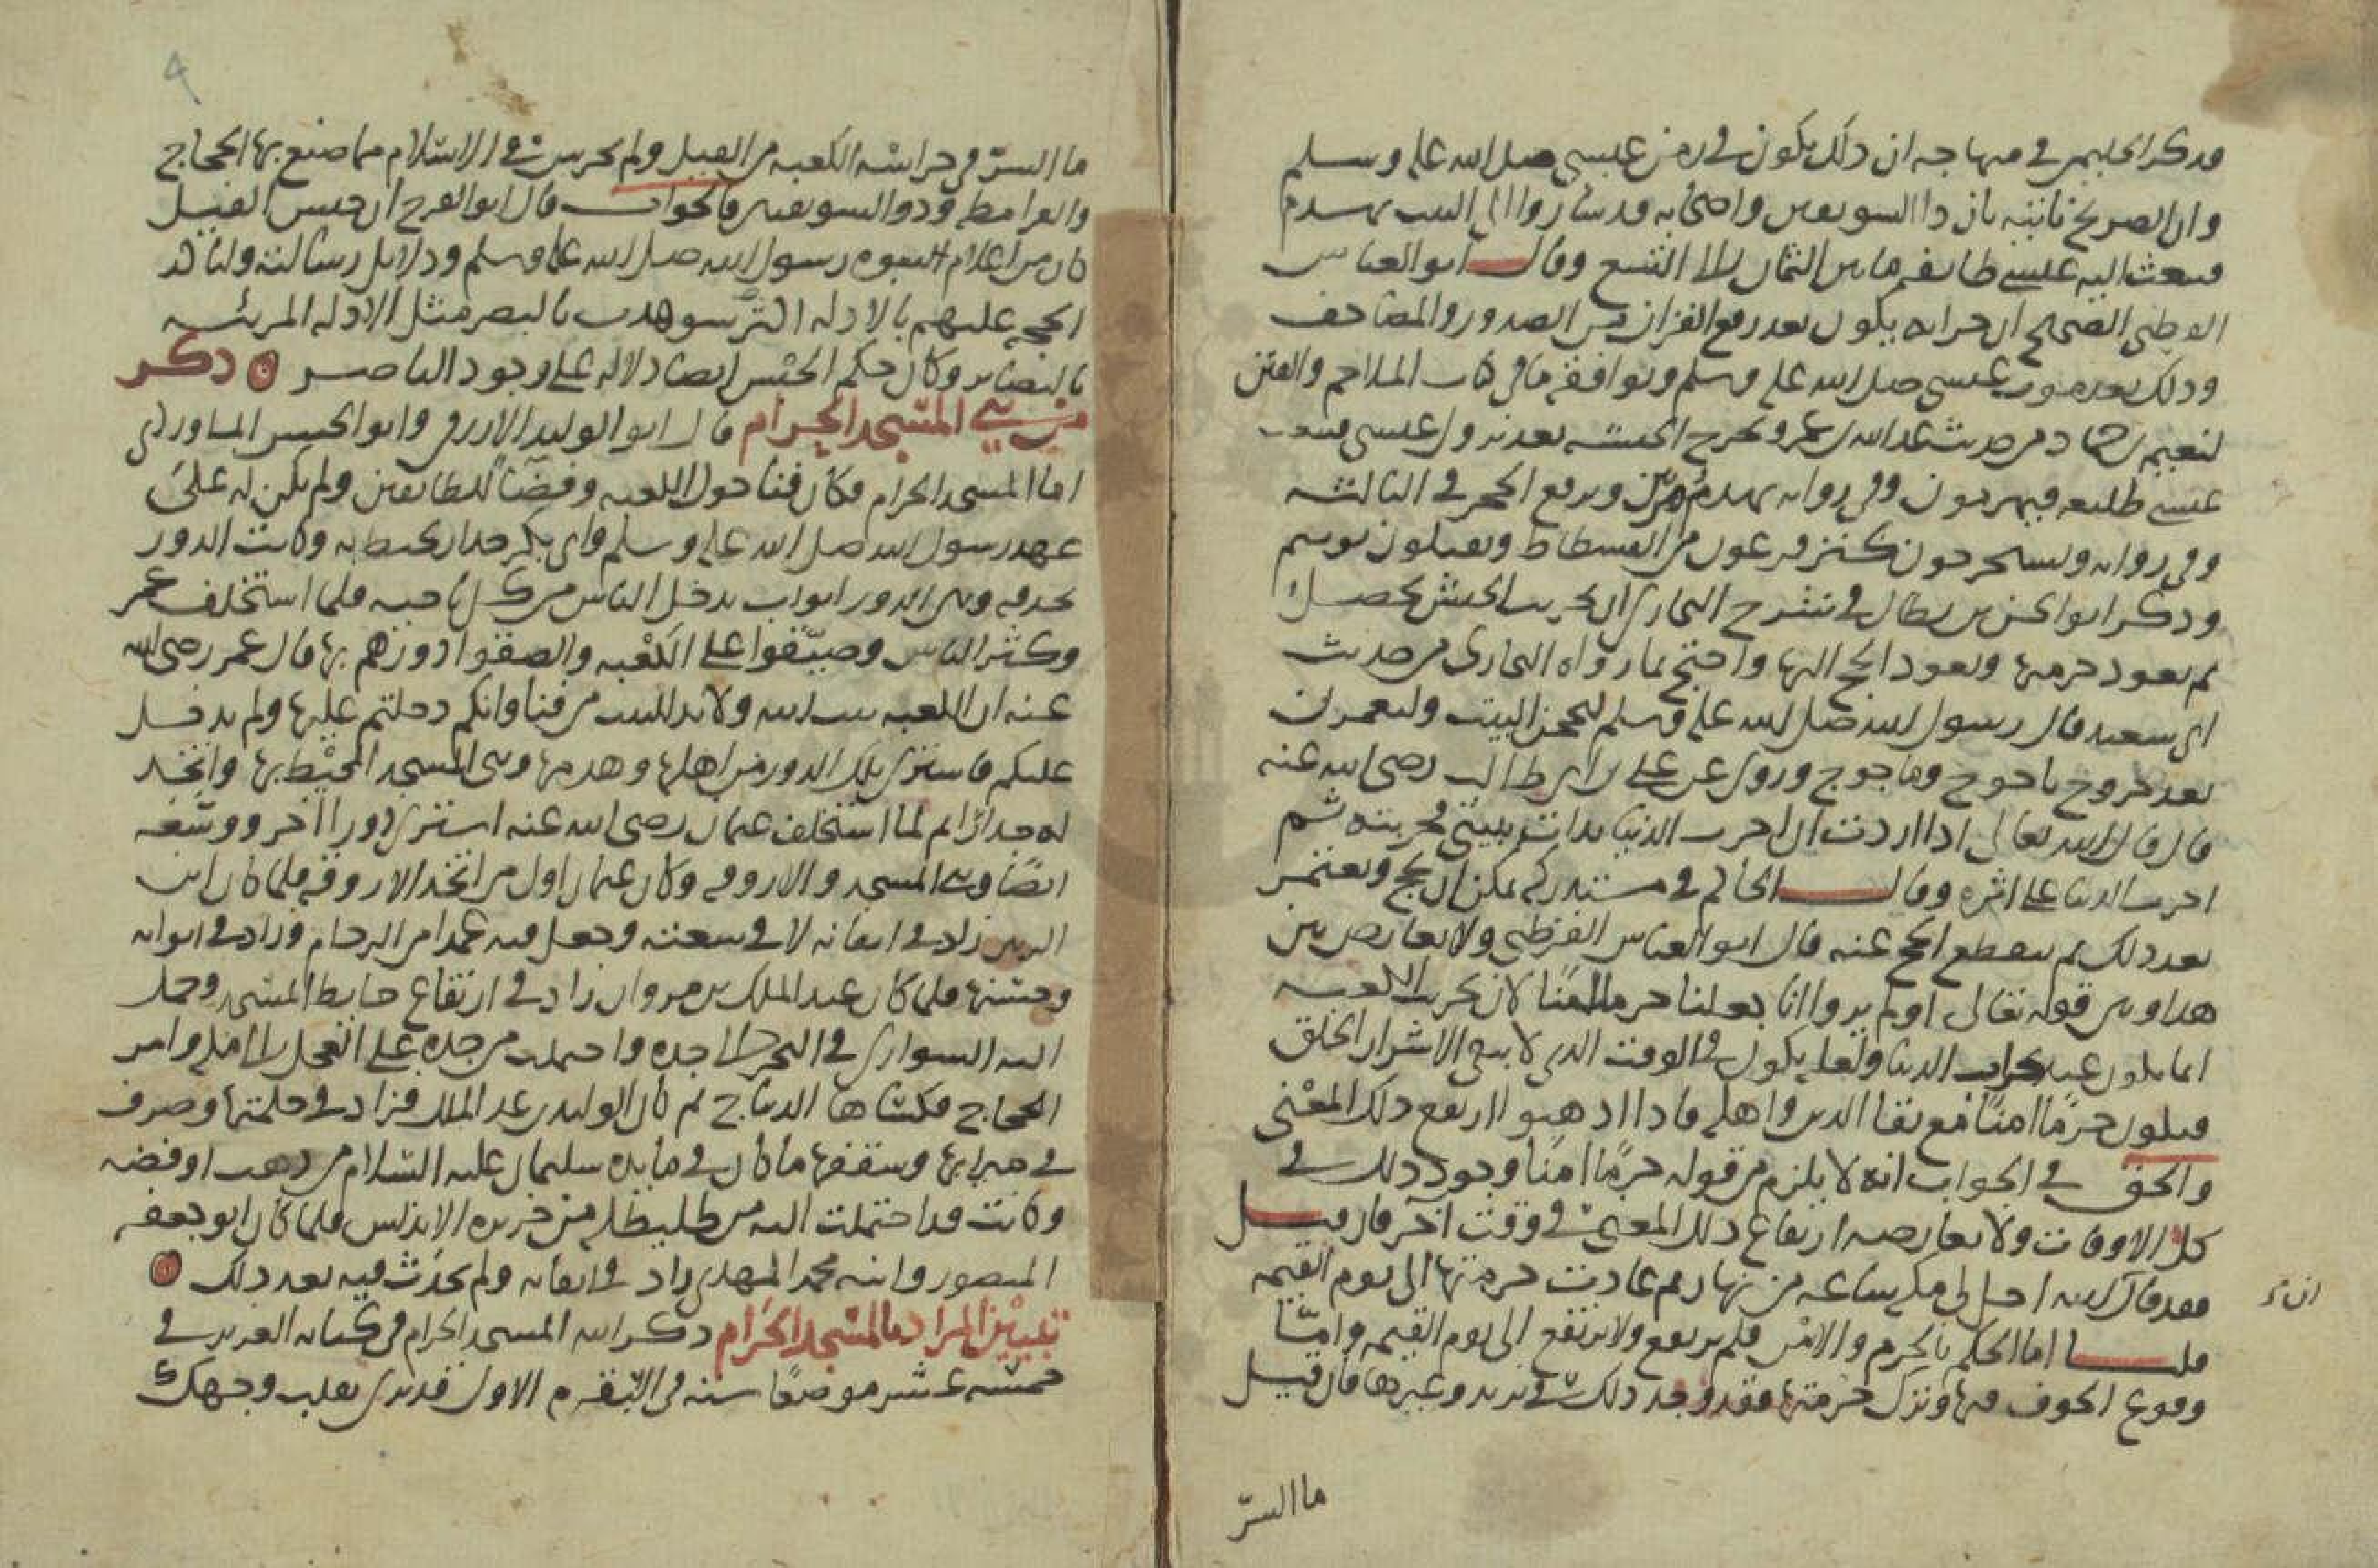 وذكر الحليمى فى منهاجه ان ذلك يكون فى زمن عيسى صلى الله عليه وسلم
وان الصريخ ياتيه بان ذا السويقتين واصحابه قد ساروا الى البيت لهدمه
فيبعث اليه عيسى طائفة ما بين الثمان الى التسع وقال ابو العباس
القرطبى الصحيح ان خرابه يكون بعد رفع القران من الصدور والمصاحف
وذلك بعد موت عيسى صلى الله عليه وسلم ويوافقه ما فى كتاب الملاحم والفتن
لنعيم بن حماد من حديث عبد الله بن عمرو تخرج الحبشه بعد نزول عيسى فيبعث
عيسى طليعه فيهزمون وفى روايه يهدم مرتين ويرفع الحجر فى الثالثه
وفى روايه ويستخرجون كنز فرعون من الفسطاط ويقتلون بوسيم
وذكر ابو الحسن بن بطال فى شرح البخارى ان تخريب الحبش يحصل
ثم تعود حرمتها ويعود الحج اليها واحتج بما رواه البخارى من حديث
ابى سعيد قال رسول الله صلى الله عليه وسلم ليحجن البيت وليعتمرن
بعد خروج ياجوج وماجوج وروى عن على بن ابى طالب رضى الله عنه
قال قال الله تعالى اذا اردت ان اخرب الدنيا بدات ببيتى فخربته ثم
اخرب الدنيا على اثره وقال الحاكم فى مستدركه يمكن ان يحج ويعتمر
بعد ذلك ثم ينقطع الحج عنه قال ابو العباس القرطبى ولا تعارض بين
هذا وبين قوله تعالى اولم يروا انا جعلنا حرما امنا لان تخريب الكعبه
انما يكون عند خراب الدنيا ولعله يكون فى الوقت الذى لا يبقى الا شرار الخلق
فيكون حرما امنا مع بقا الدين واهله فاذا ذهبوا ارتفع ذلك المعنى
والحق فى الجواب انه لا يلزم من قوله حرما امنا وجود ذلك فى
كل الاوقات ولا يعارضه ارتفاع ذلك المعنى فى وقت اخر فان قيل
فقد قال ان الله احل لى مكه ساعه من نهار ثم عادت حرمتها الى يوم القيمه
قلنا اما الحكم بالحرم والامن فلم يرتفع ولا يرتفع الى يوم القيمه واما
وقوع الخوف فيها وترك حرمتها فقد وجد ذلك فى يزيد وغيرها فان قيل
ما السر
ما السر فى حراسه الكعبه من الفيل ولم تحرس فى الاسلام مما صنع بها الحجاج
والقرامطه وذو السويقتين فالجواب قال ابو الفرج ان حبس الفيل
كان من اعلام النبوه رسول الله صلى الله عليه وسلم ودلايل رسالته ولتاكد
الحجه عليهم بالادله التى شوهدت بالبصر مثل الادله المرئيه
بالبصاير وكان حكم الحبس ايضا دلاله على وجود الناصر ۞ ذكر
المسجد الحرام قال ابو الوليد الازرقى وابو الحسن الماوردى
اما المسجد الحرام فكان فنا حول الكعبه وفضا للطايفين ولم يكن له على
عهد رسول الله صلى الله عليه وسلم وابى بكر جدار يحيط به وكانت الدور
محدقه وبين الدور ابواب يدخل الناس من كل ناحيه فلما استخلف عمر
وكثر الناس وضيقوا على الكعبه والصقوا دورهم بها قال عمر رضى الله
عنه ان الكعبه بيت الله ولا بد للبيت من فنا وانكم دخلتم عليها ولم تدخل
عليكم فاشترى تلك الدور من اهلها وهدمها وبنى المسجد المحيط بها واتخذ
له جدارا ثم لما استخلف عثمان رضى الله عنه اشترى دورا اخر ووسعه
ايضا وبنى المسجد والاروقه وكان عثمان اول من اتخذ الاروقه فلما كان ابن
الزبير زاد فى اتقانه لا فى سعته وجعل فيه عمدا من الرخام وزاد فى ابوابه
وحسنها فلما كان عبد الملك بن مروان زاد فى ارتفاع حايط المسجد وحمل
اليه السوارى فى البحر الى جده واحتملت من جده على العجل الى مكه وامر
الحجاج فكساها الديباج ثم كان الوليد بن عبد الملك فزاد فى حليتها وصرف
فى ميزابها وسقفها ما كان فى مائده سليمان عليه السلام من ذهب او فضه
وكانت قد احتملت اليه من طليطله من جزيره الاندلس فلما كان ابو جعفر
المنصور وابنه محمد المهدى زاد فى اتقانه ولم يحدث فيه بعد ذلك ۞
تبيين المراد بالمسجد الحرام ذكر الله المسجد الحرام فى كتابه العزيز فى
خمسه عشر موضعا سته فى البقره م الاول قد نرى تقلب وجهك